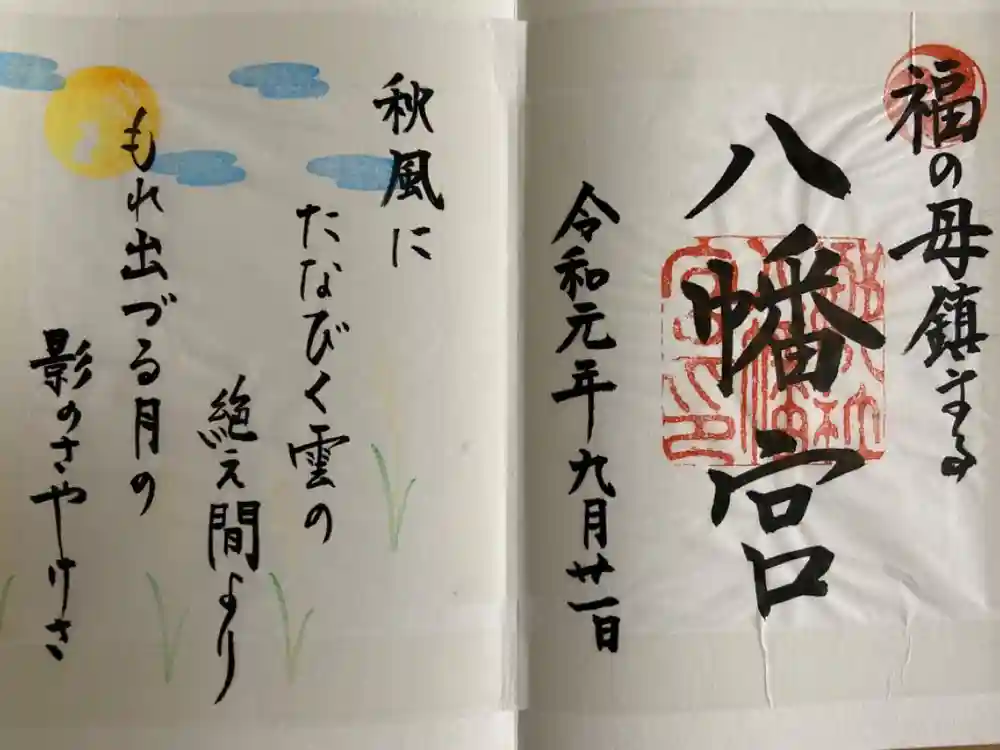 福の母鎮まる
八幡宮
令和元年九月廿一日
秋風に
たなびく雲の
絶え間より
もれ出づる月の
影のさやけさ